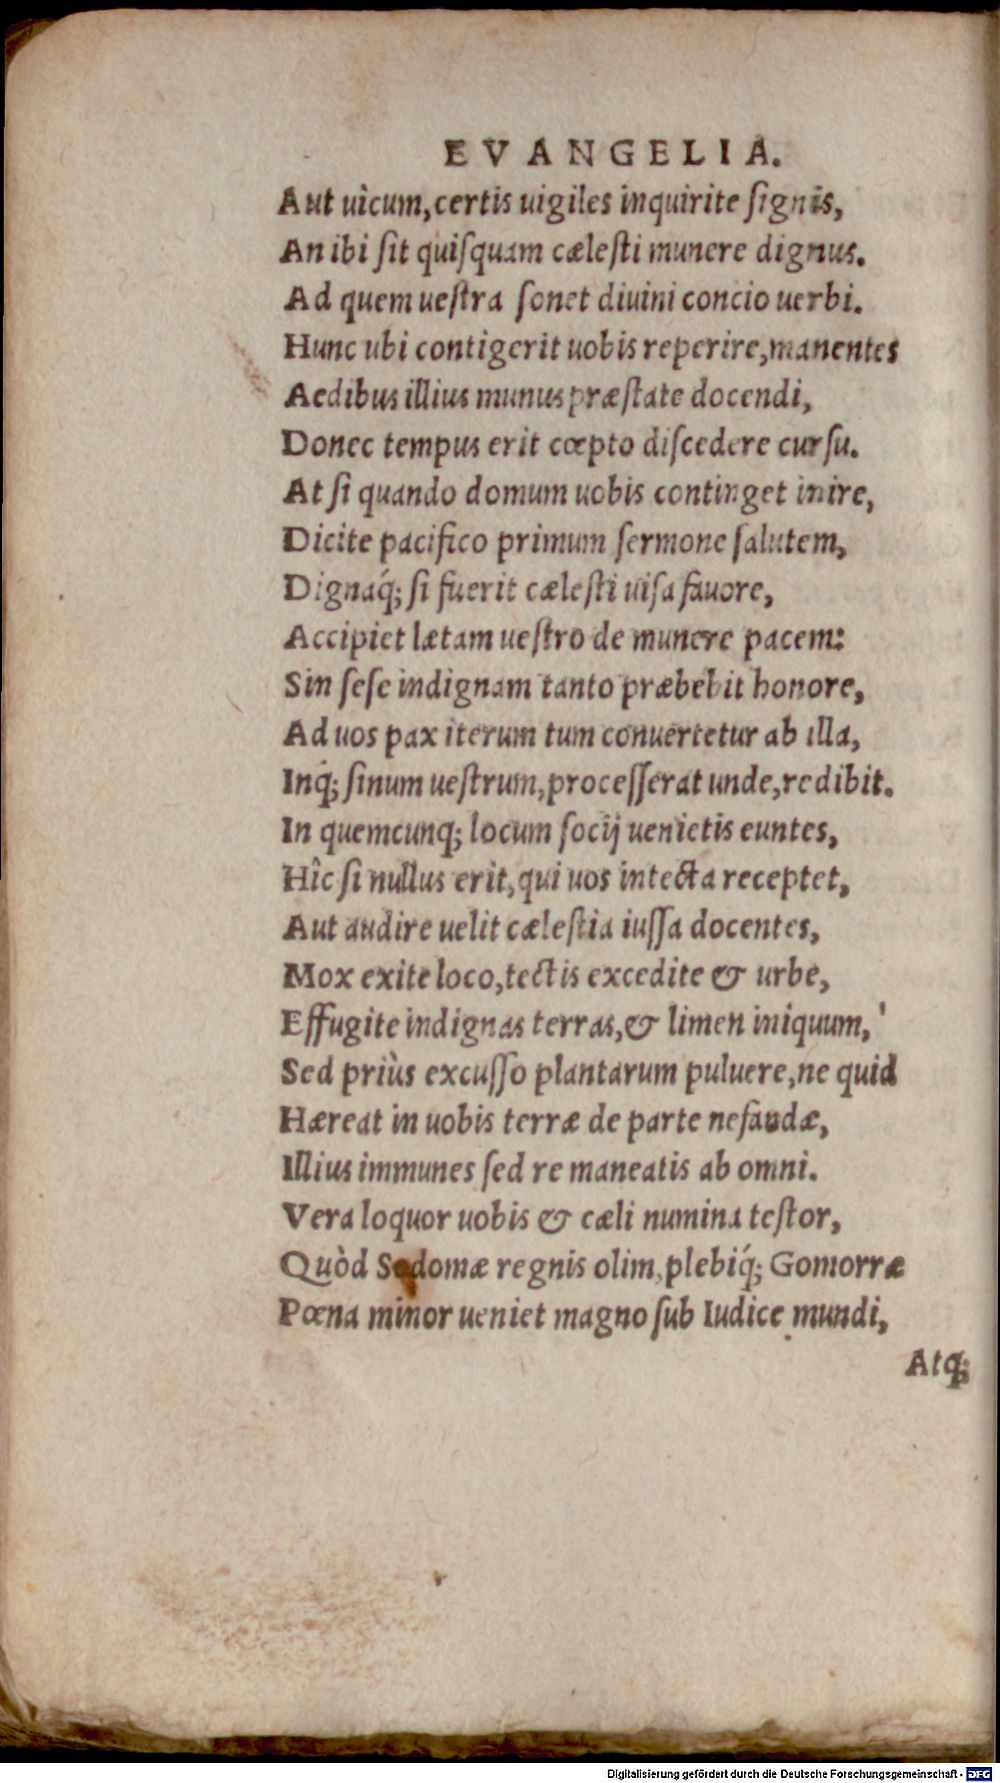 EVANGELIA.
Aut uìcum, certis uigiles inquirite ſignis,
An ibi ſit quiſquam cæleſti munere dignus.
Ad quem ueſtra ſonet diuini concio uerbi.
Hunc ubi contigerit uobis reperire, manentes
Aedibus illius munus præſtate docendi,
Donec tempus erit cœpto diſcedere curſu.
At ſi quando domum uobis continget inire,
Dicite pacifico primum ſermone ſalutem,
Dignaq́; ſi fuerit cæleſti uiſa fauore,
Accipiet lætam ueſtro de munere pacem:
Sin ſeſe indignam tanto præbebit honore,
Ad uos pax iterum tum conuertetur ab illa,
Inq́; ſinum ueſtrum, proceſſerat unde, redibit.
In quemcunq; locum ſocij uenietis euntes,
Hîc ſi nullus erit, qui uos in tecta receptet,
Aut audire uelit cæleſtia iuſſa docentes,
Mox exite loco, tectis excedite & urbe,
Effugite indignas terras, & limen iniquum,
Sed priùs excuſſo plantarum puluere, ne quid
Hæreat in uobis terræ de parte nefandæ,
Illius immunes ſed re maneatis ab omni.
Vera loquor uobis & cæli numina teſtor,
Quòd Sodomæ regnis olim, plebiq́; Gomorræ
Pœna minor ueniet magno ſub Iudice mundi,
Atq;
Digitalisierung gefördert durch die Deutsche Forschungsgemeinschaft - DFG